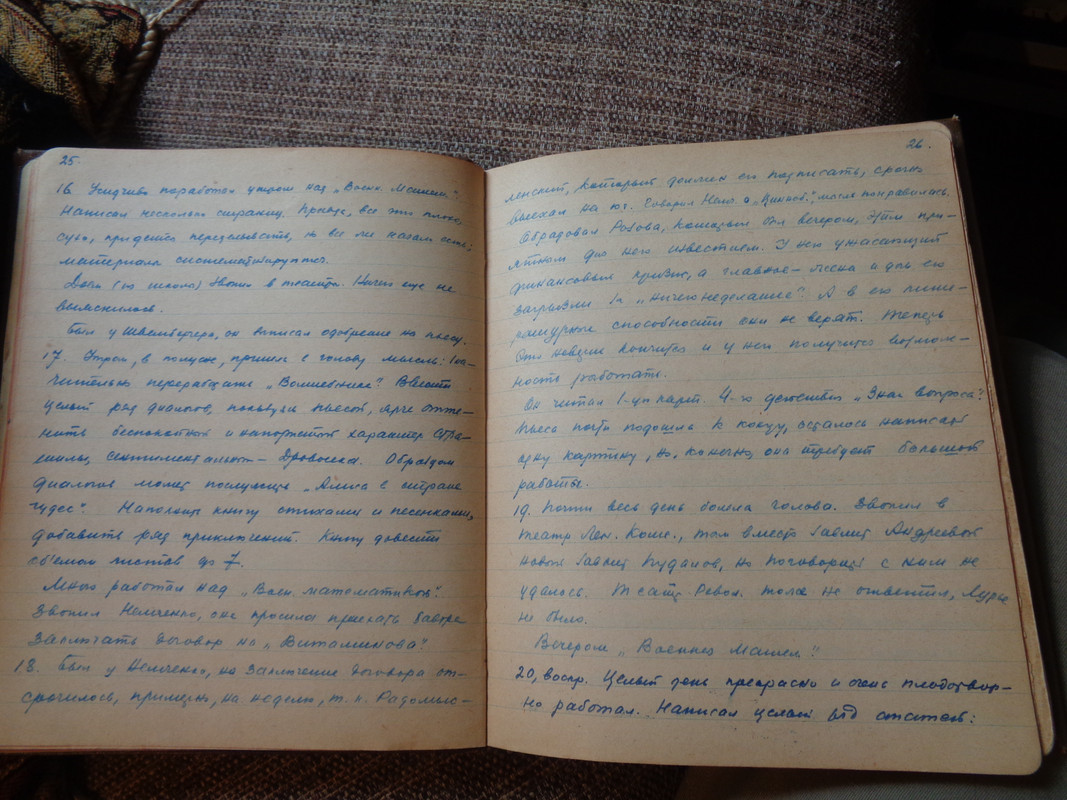 25.
16. Усидчиво поработал утром над „Воен. Матем."
Написал несколько страниц. Правда, все это плохо,
сухо, придется переделывать, но все же
материал систематизируется.
Двен (по школе) звонил в театр. Ничего еще не
выяснилось.
Был у Шванбергера, он написал одобрение на пьесу.
17. Утром, в полусне, пришла в голову мысль:
чительно переработать „Волшебника". Ввести
целый ряд диалогов, пользуясь пьесой, ярче отте-
нить беспокойный и напористый характер Стра-
шилы, сентиментальность – Дровосека. Образцом
диалогов может послужить „Алиса в стране
чудес". Наполнить книгу стихами и песенками,
добавить ряд приключений. Книгу довести
об'емом листов до 7.
Много работал над „Воен. математикой".
Звонил Немченко, она просила приехать завтра
заключать договор на „Витаминова".
18. Был у Немченко, но заключение договора от-
срочилось, примерно, на неделю, т. к. Радомыс-
26.
ленский, который должен его подписать, срочно
выехал на юг. Говорил Нем. о
Обрадовал Розова, который был вечером, этим при-
ятным для него известием. У него ужасающий
финансовый кризис, а главное – жена и дочь его
загрызли за „ничегонеделание". А в его лите-
ратурные способности они не верят. Теперь
это неверие кончится и у него получится возмож-
ность работать.
Он читал 1-ую карт. 4-го действия „Знак вопроса".
Пьеса почти подошла к концу, осталось написать
одну картину, но, конечно, она требует большой
работы.
19. Почти весь день болела голова. Звонил в
театр Лен. Комс., там вместо завлит Андреевой
новый завлит Пуданов, но поговорить с ним не
удалось. Театр Револ. тоже не ответил, Лурье
не было.
Вечером „Военная Матем."
20, воскр. Целый день прекрасно и очень плодотвор-
но работал. Написал целый ряд статей: